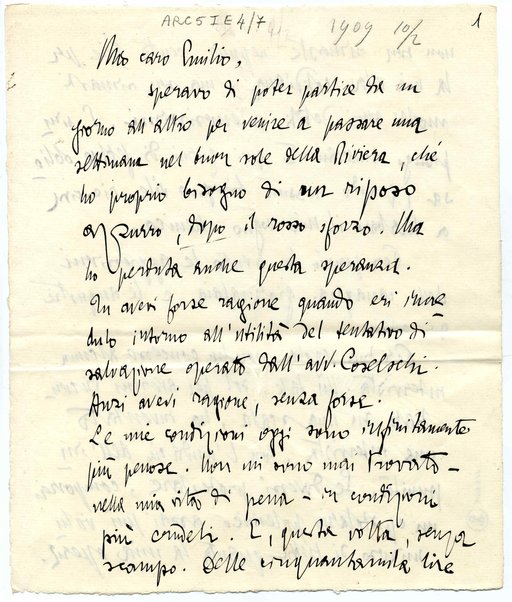 ARC 5 I E 4/7 1909 10/2 1
Mio caro Emilio,
speravo di poter partire da un
giorno all'altro per venire a passare una
settimana nel buon sole della Riviera, ché
ho proprio bisogno di un riposo
azzurro, dopo il rosso sforzo. Ma
ho perduta anche questa speranza.
Tu avevi forse ragione quando eri incre
dulo intorno all'utilità del tentativo di
salvazione operato dall'avv. Coselschi.
Anzi avevi ragione, senza forse.
Le mie condizioni oggi sono infinitamente
più penose. Non mi sono mai trovato –
nella mia vita di pena – in condizioni
più crudeli. E, questa volta, senza
scampo. Delle cinquantamila lire